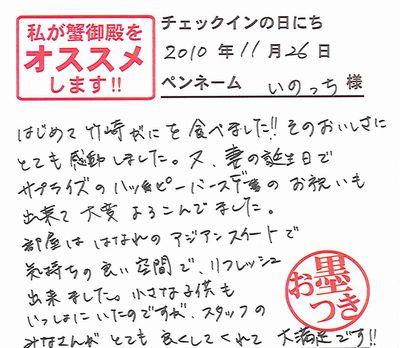 私が蟹御殿を
オススメ
します!!
チェックインの日にち
2010 年 11 月 26 日
ペンネーム いのっち 様
はじめて竹崎がにを食べました!! そのおいしさに
とても感動しました。又、妻の誕生日で
サプライズのハッピーバースデーのお祝いも
出来て大変よろこんでました。
部屋ははなれのアジアンスイートで
気持ちの良い空間で、リフレッシュ
出来ました。小さな子供も
いっしょにいたのですが、スタッフの
みなさんがとても良くしてくれて 大満足です!!
お墨つき